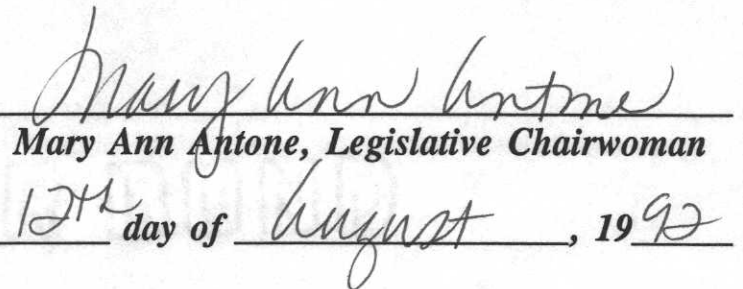 Mary Ann Antone
Mary Ann Antone, Legislative Chairwoman
12th day of August, 1992